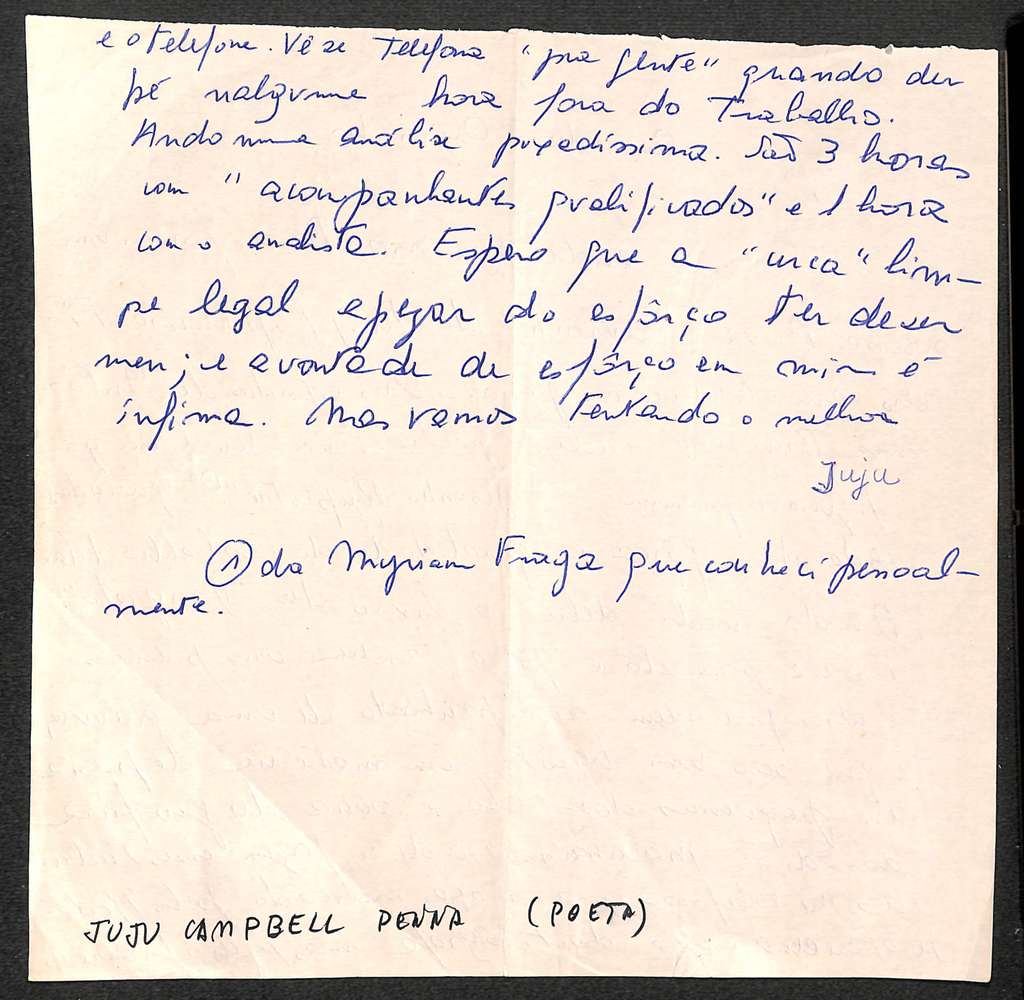 e o telefone. Vê se telefona "pra gente" quando der
pé nalguma hora fora do trabalho.
Ando numa análise puxadíssima. São 3 horas
com "acompanhantes qualificados" e 1 hora
com o analista. Espero que a "cuca" lim-
pe legal apezar do esfôrço ter de ser
meu; e a vontade de esfôrço em mim é
ínfima. Mas vamos tentando o melhor
Juju
① da Myriam Fraga que conheci pessoal-
mente.
JUJU CAMPBELL PENNA (POETA)